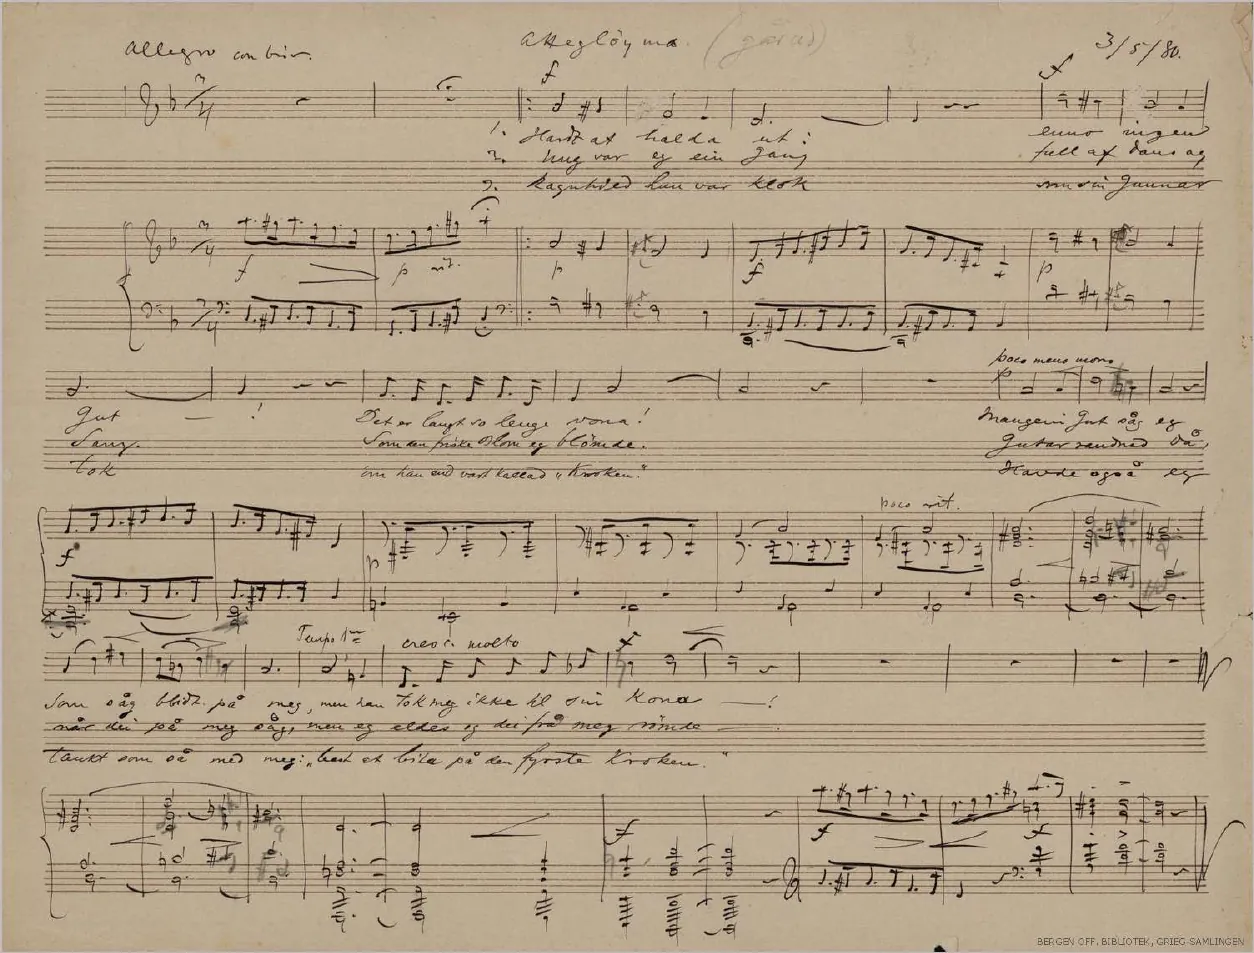 Allegro con brio.
Atteglöyma. (gåtid)
3/5/80.
f
f
1. Hardt at halda ut:
enno ingen
2. Ung var eg ein Gang
full af Dans og
3. kagnhied han var klok
som sin Gunnar
f
p rit.
p
f
p
poco meno mosso
p
Gut — !
Det er langt so lenge vona!
Mangein Gut såg eg
Sang.
Som den friske Blom eg blömde.
Gutar rendned då,
tok
om han end vart kallad „Kroken."
Havde også eg
poco rit.
f
p
Tempo 1mo
cresc. molto
f
Som såg blidt på meg, men han tok meg ikke til sin Kona — !
når dei på meg såg, men eg eldes og dei frå meg römde —
tænkt som så med meg: „best et bita på den fyrste Kroken."
f
f
f
BERGEN OFF. BIBLIOTEK, GRIEG SAMLINGEN